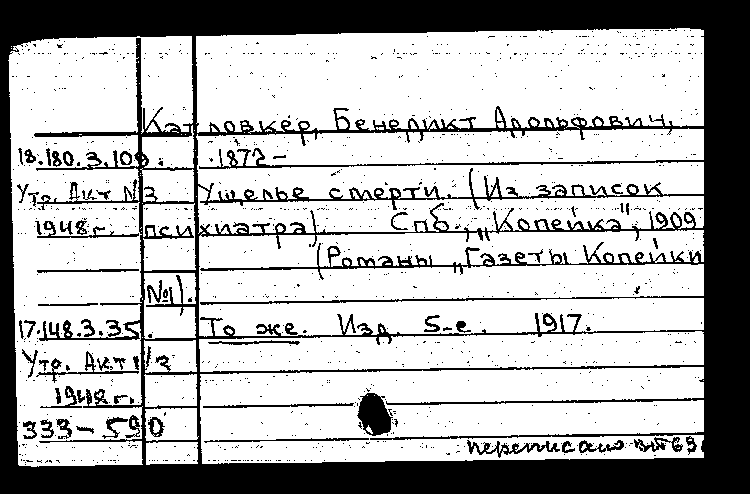 Катловкер, Бенедикт Адольфович,
18.180.3.109. 1872-
Утр. Акт №3 Ущелье смерти. (Из записок
1948 г. психиатра). Спб., „Копейка", 1909
(Романы „Газеты Копейки
№1).
17.148.3.35. То же. Изд. 5-е. 1917.
Утр. Акт
1948 г.
333-590
переписано